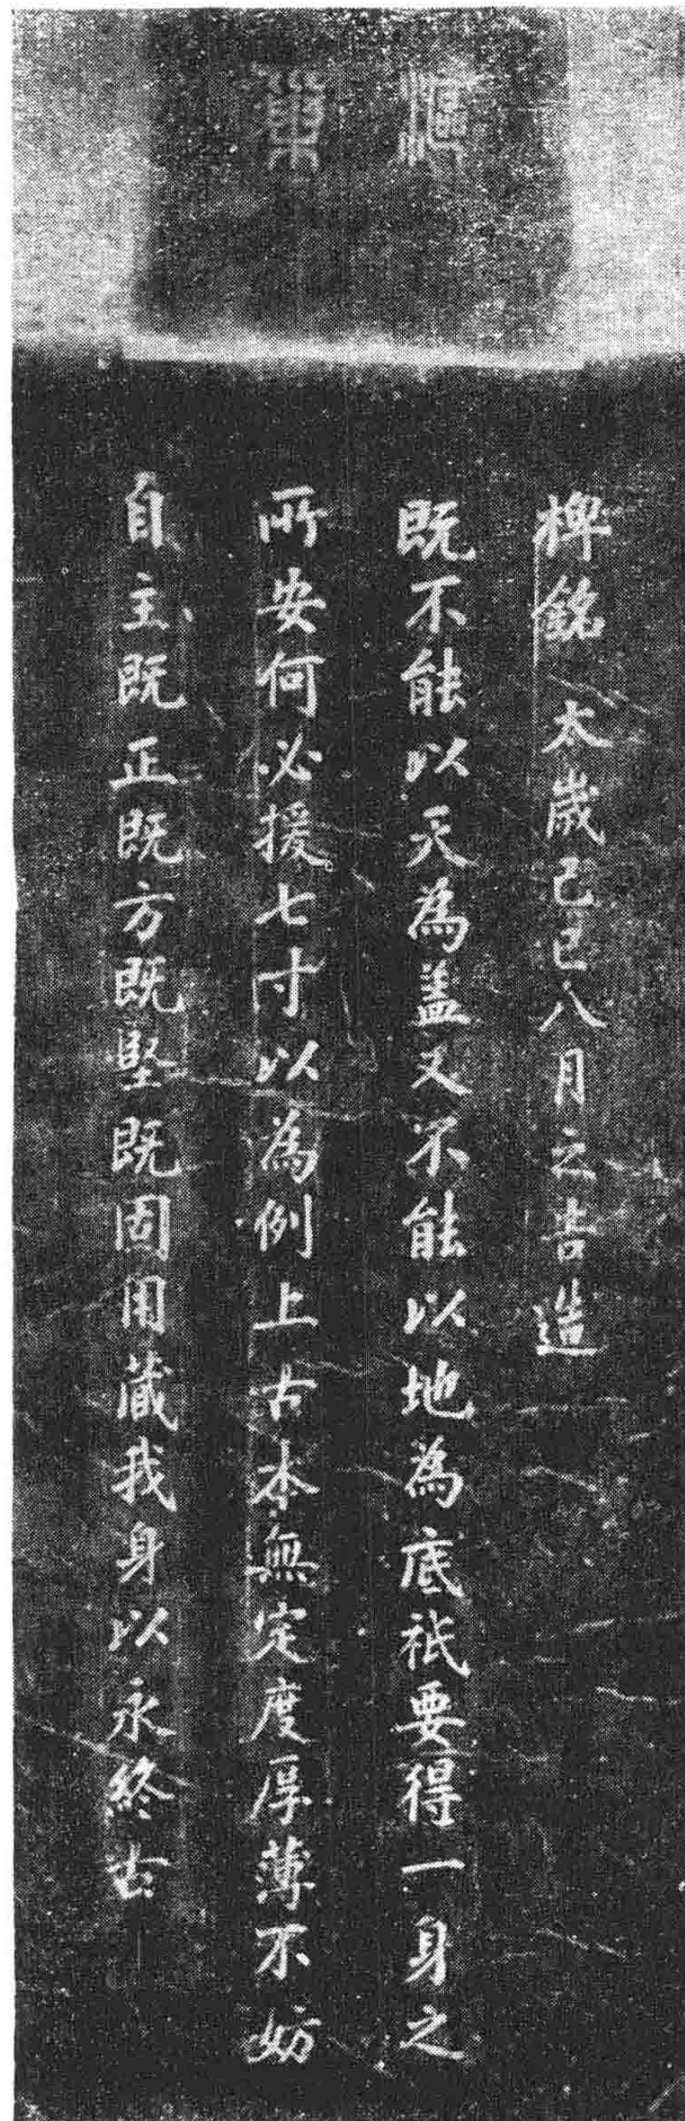 巢
椑銘 太歲己巳八月之吉造
既不能以天為盖又不能以地為底祇要得一身之
所安何必援七寸以為例上古本無定度厚薄不妨
自主既正既方既堅既固用藏我身以永終古